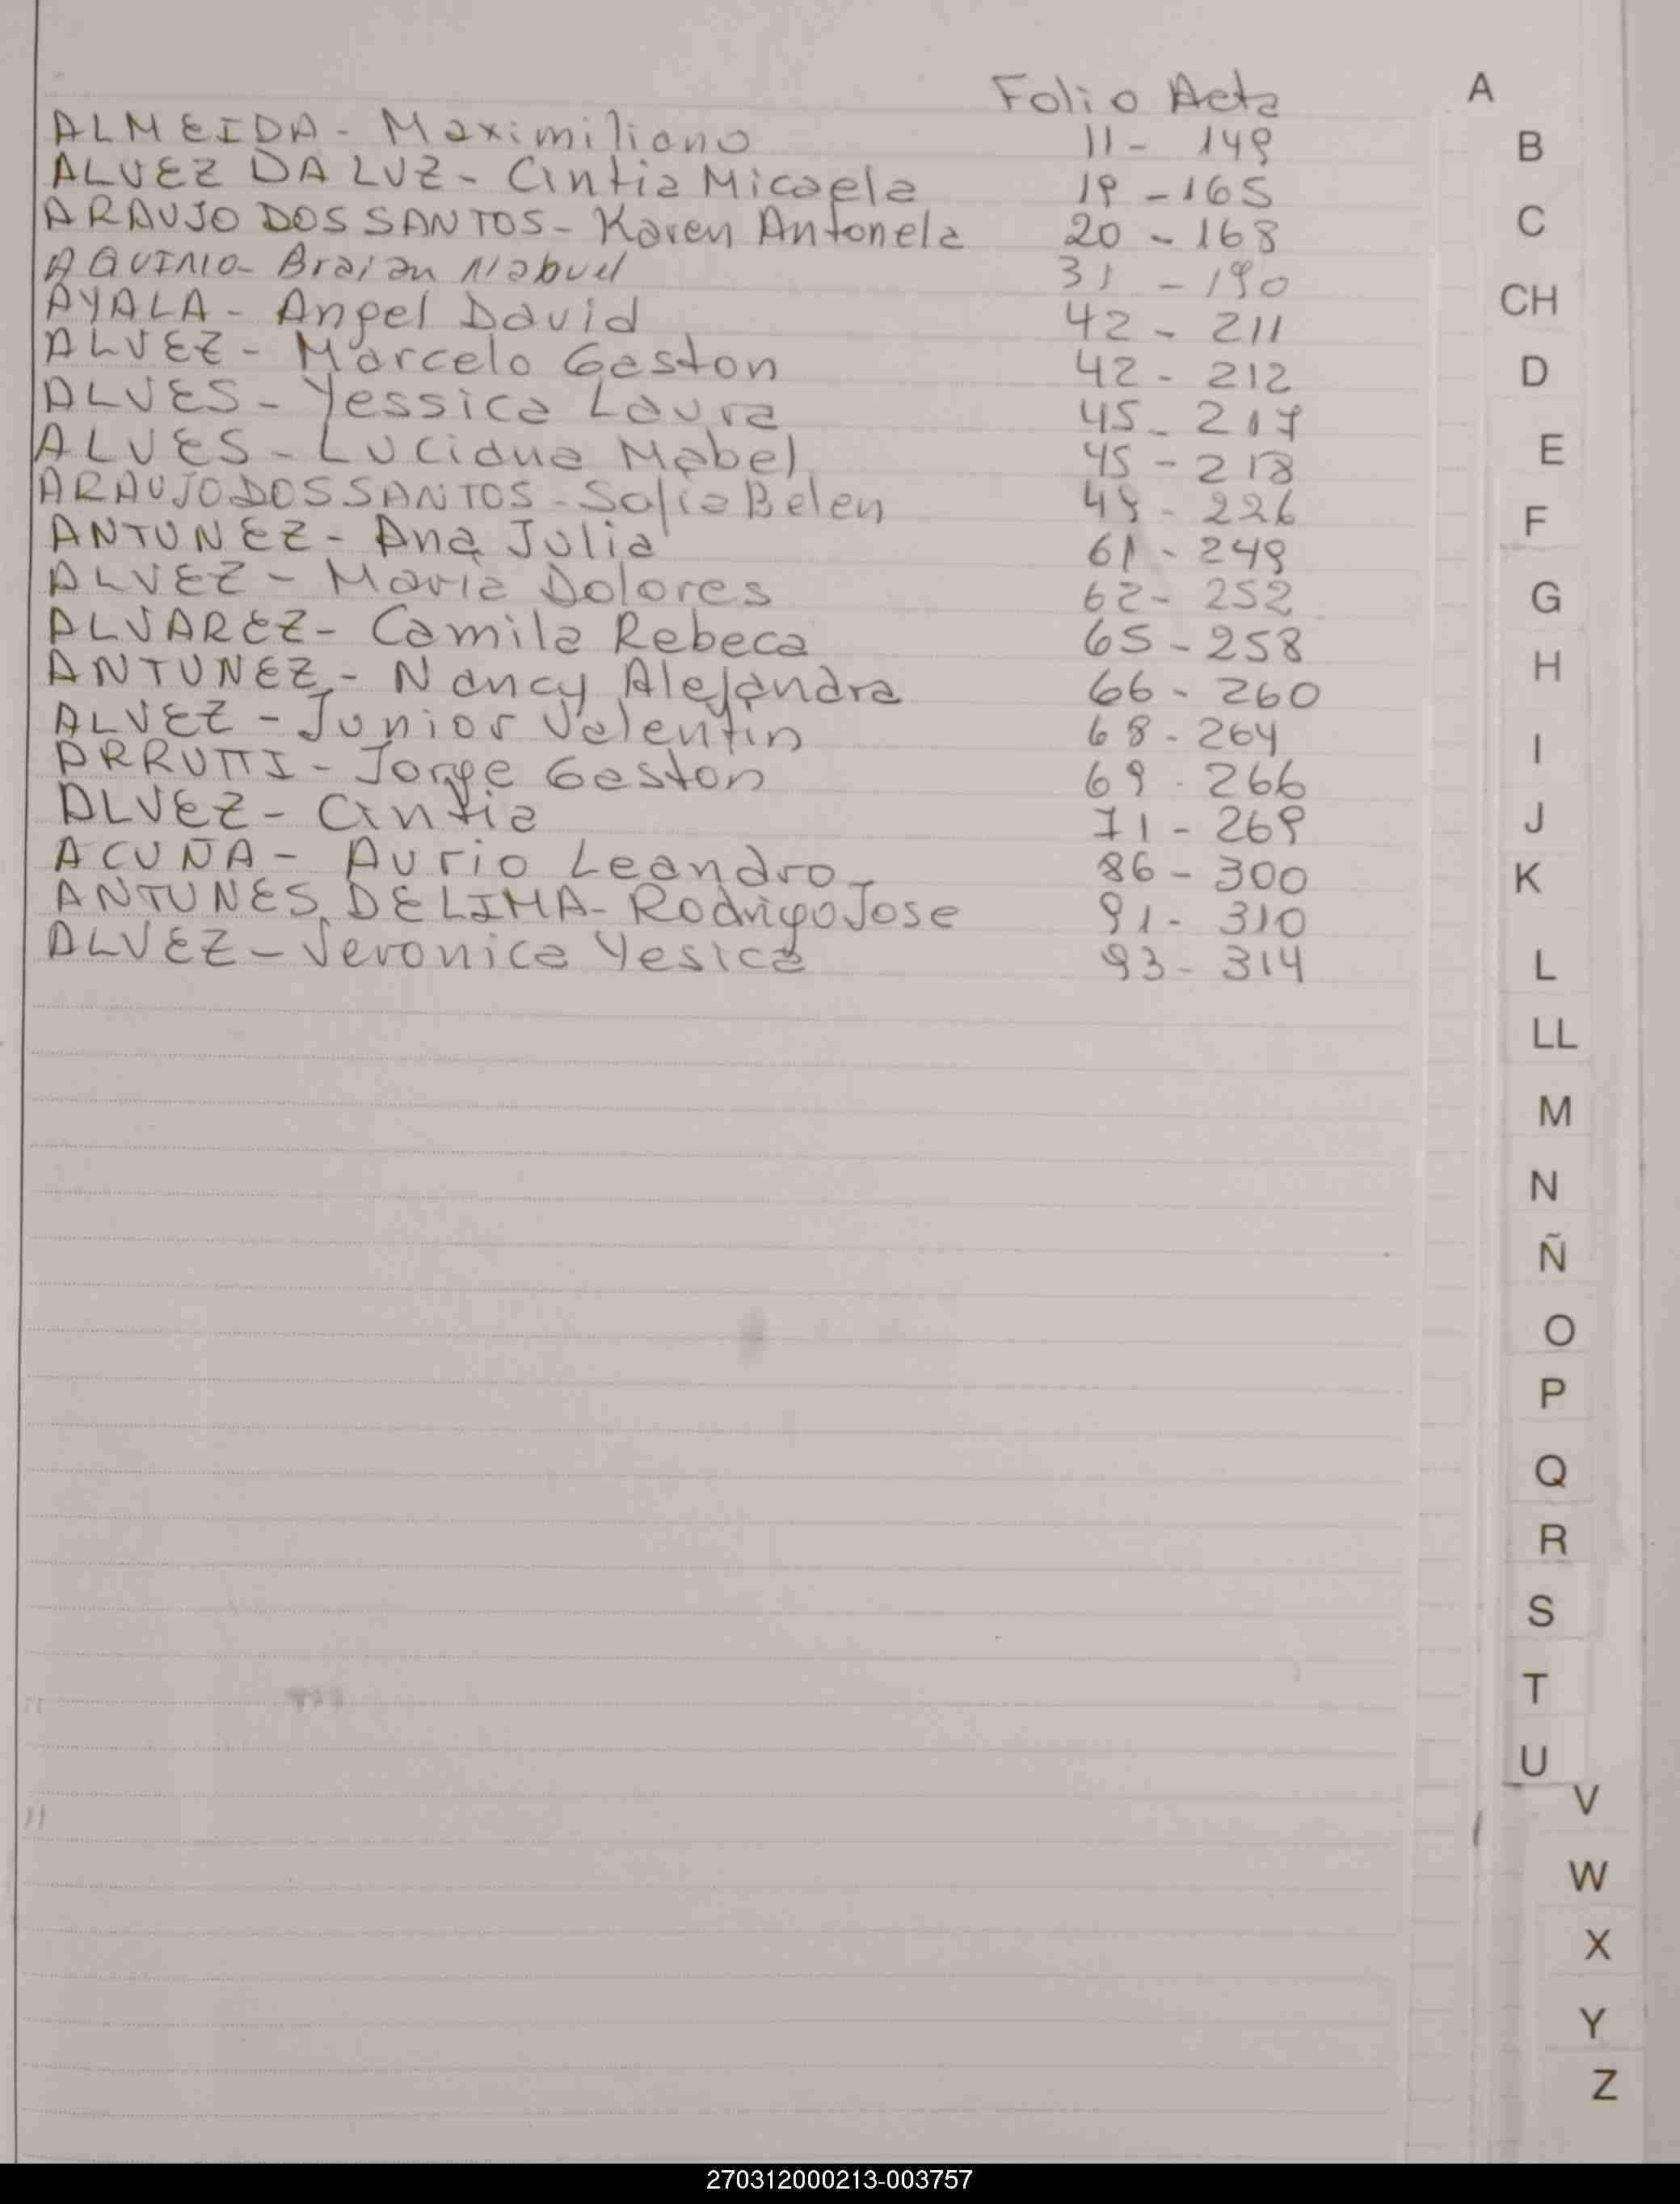 Folio Acta
ALMEIDA - Maximiliano 11 - 149
ALVEZ DA LUZ - Cintia Micaela 19 - 165
ARAUJO DOS SANTOS - Karen Antonela 20 - 168
AQUINO - Braian Nahuel 31 - 190
AYALA - Angel David 42 - 211
ALVEZ - Marcelo Gaston 42 - 212
ALVES - Yessica Laura 45 - 217
ALVES - Luciana Mabel 45 - 218
ARAUJO DOS SANTOS - Sofia Belen 49 - 226
ANTUNEZ - Ana Julia 61 - 249
ALVEZ - Maria Dolores 62 - 252
ALVAREZ - Camila Rebeca 65 - 258
ANTUNEZ - Nancy Alejandra 66 - 260
ALVEZ - Junior Valentin 68 - 264
ARRUTTI - Jorge Gaston 69 - 266
ALVEZ - Cintia 71 - 269
ACUÑA - Aurio Leandro 86 - 300
ANTUNES DE LIMA - Rodrigo Jose 91 - 310
ALVEZ - Veronica Yesica 93 - 314
A
B
C
CH
D
E
F
G
H
I
J
K
L
LL
M
N
Ñ
O
P
Q
R
S
T
U
V
W
X
Y
Z
270312000213-003757